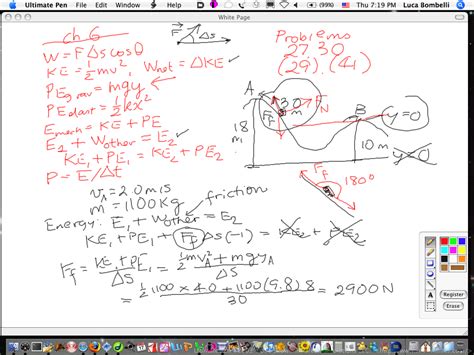 Ultimate Pen File Edit Options Window Help (99%) Thu 7:19 PM Luca Bombelli
White Page
Ch 6
F Δs
W = FΔs cosθ
KE = ½mv², Wnet = ΔKE
PEgrav = mgy
PEelast = ½kx²
Emech = KE + PE
E1 + Wother = E2
KE1 + PE1 = KE2 + PE2
P = E/Δt
Problems
27 30
(29) (41)
A
30 m
Ff
FN
B
y=0
18 m
10 m
y=0
Ff
180°
vA = 2.0 m/s
m = 1100 kg
friction
Energy: E1 + Wother = E2
KE1 + PE1 + Ff Δs(-1) = KE2 + PE2
Ff = KE1 + PE1 / ΔS = ½mvA² + mgyA / ΔS
= ½ 1100 × 4.0 + 1100(9.8)8 / 30 = 2900 N
Register
Erase